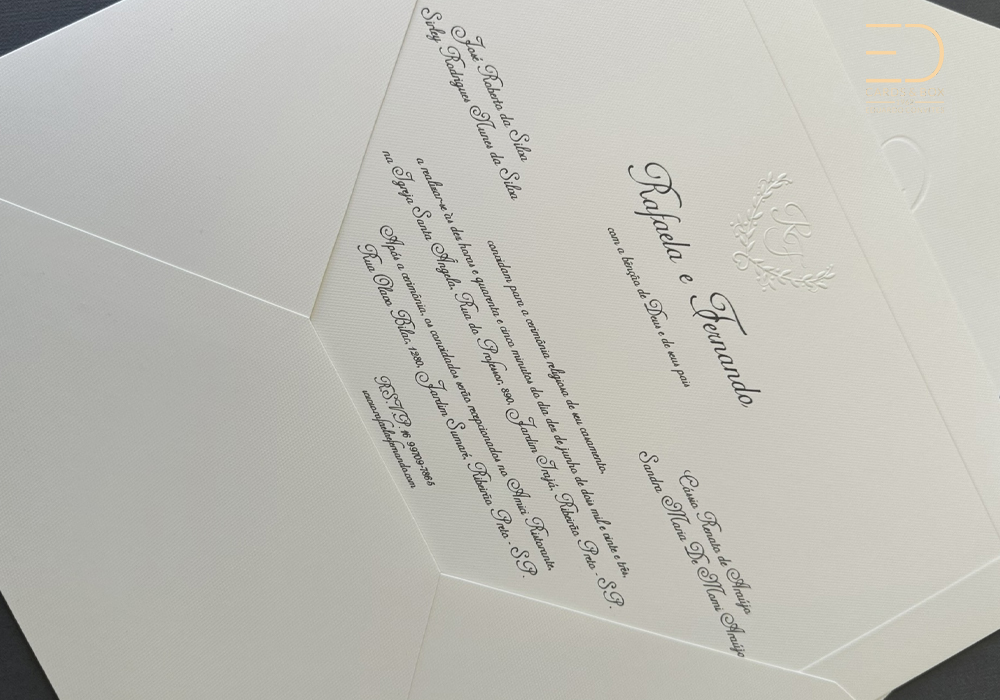 Rafaela e Fernando
com a bênção de Deus e de seus pais
José Roberto da Silva
Sirley Rodrigues Nunes da Silva
Cássio Renato de Araújo
Sandra Maria De Mami Araújo
convidam para a cerimônia religiosa de seu casamento,
a realizar-se às dez horas e quarenta e cinco minutos do dia dez de junho de dois mil e vinte e três,
na Igreja Santa Ângela, Rua do Professor, 890, Jardim Irajá, Ribeirão Preto - SP.
Após a cerimônia, os convidados serão recepcionados no Amici Ristorante,
Rua Olavo Bilac, 1280, Jardim Sumaré, Ribeirão Preto - SP.
R.S.V.P. 16 99709-7865